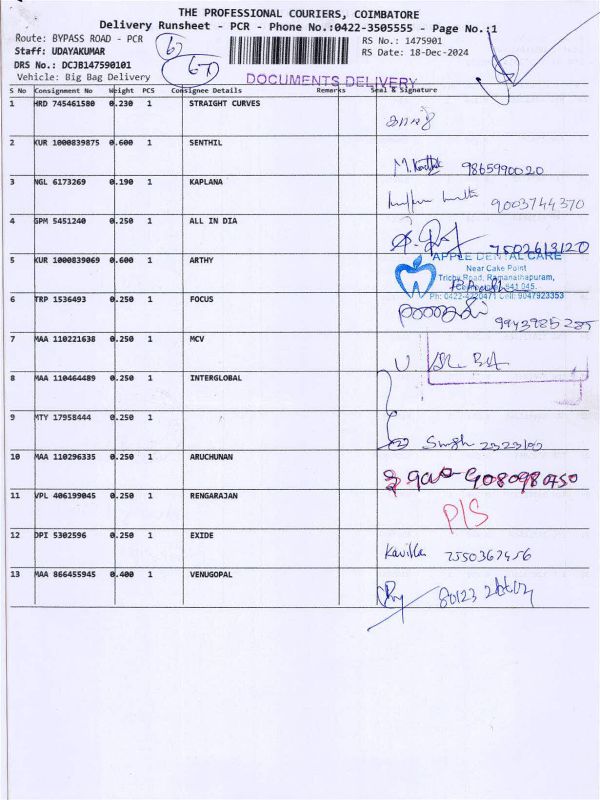 THE PROFESSIONAL COURIERS, COIMBATORE
Delivery Runsheet - PCR - Phone No.:0422-3505555 - Page No.:1
Route: BYPASS ROAD - PCR
RS No.: 1475901
Staff: UDAYAKUMAR
RS Date: 18-Dec-2024
DRS No.: DCJB147590101
Vehicle: Big Bag Delivery
DOCUMENTS DELIVERY
S No Consignment No Weight PCS Consignee Details Remarks Seal & Signature
1 HRD 745461580 0.230 1 STRAIGHT CURVES
2 KUR 1000839875 0.600 1 SENTHIL
9865990020
3 NGL 6173269 0.190 1 KAPLANA
9003744370
4 GPM 5451240 0.250 1 ALL IN DIA
7502613120
5 KUR 1000839069 0.600 1 ARTHY
APPLE DENTAL CARE
Near Cake Point
Trichy Road, Ramanathapuram,
641 045.
Ph: 0422-4220471 Cell: 9047923353
6 TRP 1536493 0.250 1 FOCUS
9943985285
7 MAA 110221638 0.250 1 MCV
8 MAA 110464489 0.250 1 INTERGLOBAL
9 MTY 17958444 0.250 1
10 MAA 110296335 0.250 1 ARUCHUNAN
9080980750
11 VPL 406199045 0.250 1 RENGARAJAN
P/S
12 DPI 5302596 0.250 1 EXIDE
Kavitha 7550367456
13 MAA 866455945 0.400 1 VENUGOPAL